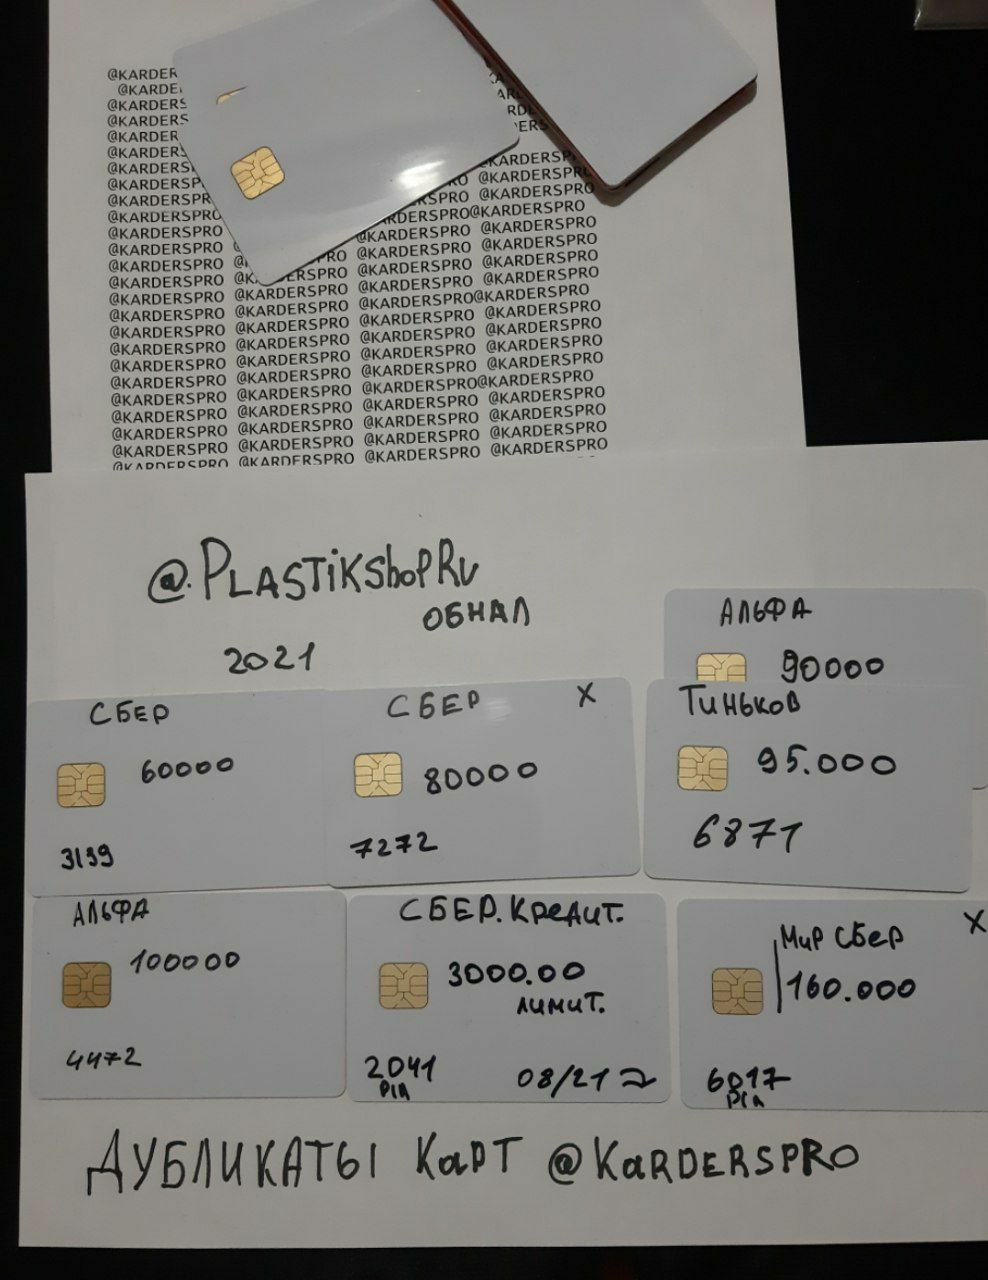 @KARDERSPRO
@KARDERSPRO
@KARDERSPRO @KARDERSPRO
@KARDERSPRO @KARDERSPRO @KARDERSPRO
@KARDERSPRO @KARDERSPRO @KARDERSPRO
@KARDERSPRO @KARDERSPRO @KARDERSPRO
@KARDERSPRO @KARDERSPRO @KARDERSPRO @KARDERSPRO
@KARDERSPRO @KARDERSPRO @KARDERSPRO@KARDERSPRO
@KARDERSPRO @KARDERSPRO @KARDERSPRO @KARDERSPRO
@KARDERSPRO @KARDERSPRO @KARDERSPRO @KARDERSPRO
@KARDERSPRO @KARDERSPRO @KARDERSPRO @KARDERSPRO
@KARDERSPRO @KARDERSPRO @KARDERSPRO @KARDERSPRO
@KARDERSPRO @KARDERSPRO @KARDERSPRO@KARDERSPRO
@KARDERSPRO @KARDERSPRO @KARDERSPRO @KARDERSPRO
@KARDERSPRO @KARDERSPRO @KARDERSPRO @KARDERSPRO
@KARDERSPRO @KARDERSPRO @KARDERSPRO @KARDERSPRO
@KARDERSPRO @KARDERSPRO @KARDERSPRO @KARDERSPRO
@.PLASTikShopRu
ОБНАЛ
2021
АЛЬФА
90000
СБЕР
60000
3139
СБЕР X
80000
7272
Тиньков
95.000
6871
АЛЬФА
100000
4472
СБЕР.Кредит.
3000.00
лимит.
2041
Pin
08/21
Мир Сбер X
160.000
6017
Pin
ДУБЛИКАТЫ КарТ @KARDERSPRO